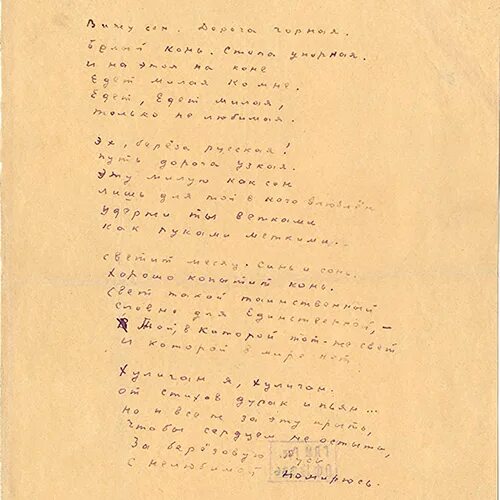 Вижу сон. Дорога чорная.
Белый конь. Стопа упорная.
И на этом на коне
Едет милая ко мне.
Едет, едет милая,
только не любимая.
Эх, берёза русская!
Путь дорога узкая.
Эту милую как сон
лишь для той в ково влюблён
удержи ты ветками
как руками меткими.
Светит месяц. Синь и сонь.
Хорошо копытит конь.
Свет такой таинственный
Словно для Единственной, —
Той, в которой тот-же свет
И которой в мире нет
Хулиган я, хулиган.
от стихов дурак и пьян...
но и все ж за эту прыть,
чтобы сердцем не остыть,
за берёзовую Русь
с нелюбимой помирюсь.